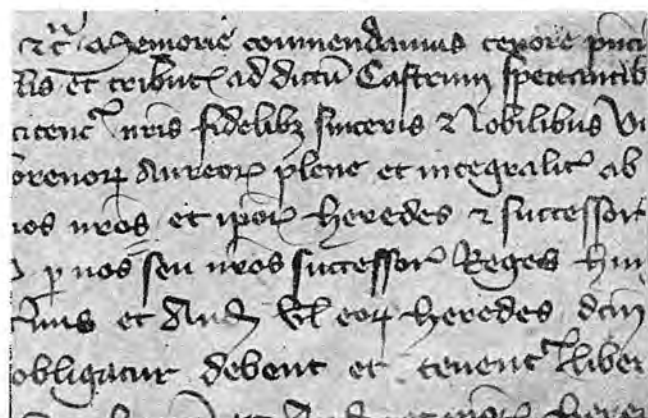 etc̄ Memorie commendamus tenore pn̄ci
lis et tribut ad dictū Castrum spectantib
nr̄is fidelibꝫ sinceris et Nobilibus Vi
orenoꝝ Aureoꝝ plene et integralit ab
nos nr̄os et ip̄oꝝ heredes et successor
ꝑ nos seu nr̄os successor Reges Hun
et And vl eoꝝ heredes dcm̄
obligatur debent et tenent liber